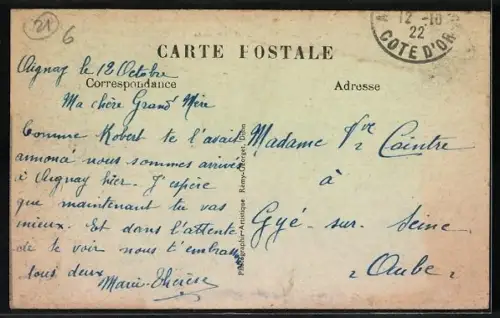 21
6
12 -10
22
COTE D'OR
CARTE POSTALE
Aignay le 12 Octobre
Correspondance
Adresse
Ma chère Grand' Mère
Comme Robert te l'avait
annoncé nous sommes arrivés
à Aignay hier. J'espère
que maintenant tu vas
mieux. Et dans l'attente
de te voir nous t'embrassons
tous deux
Marie-Thérèse
Photographie-Artistique Rémy-Georget, Dijon
Madame Vve Cointre
à
Gyé-sur-Seine
Aube